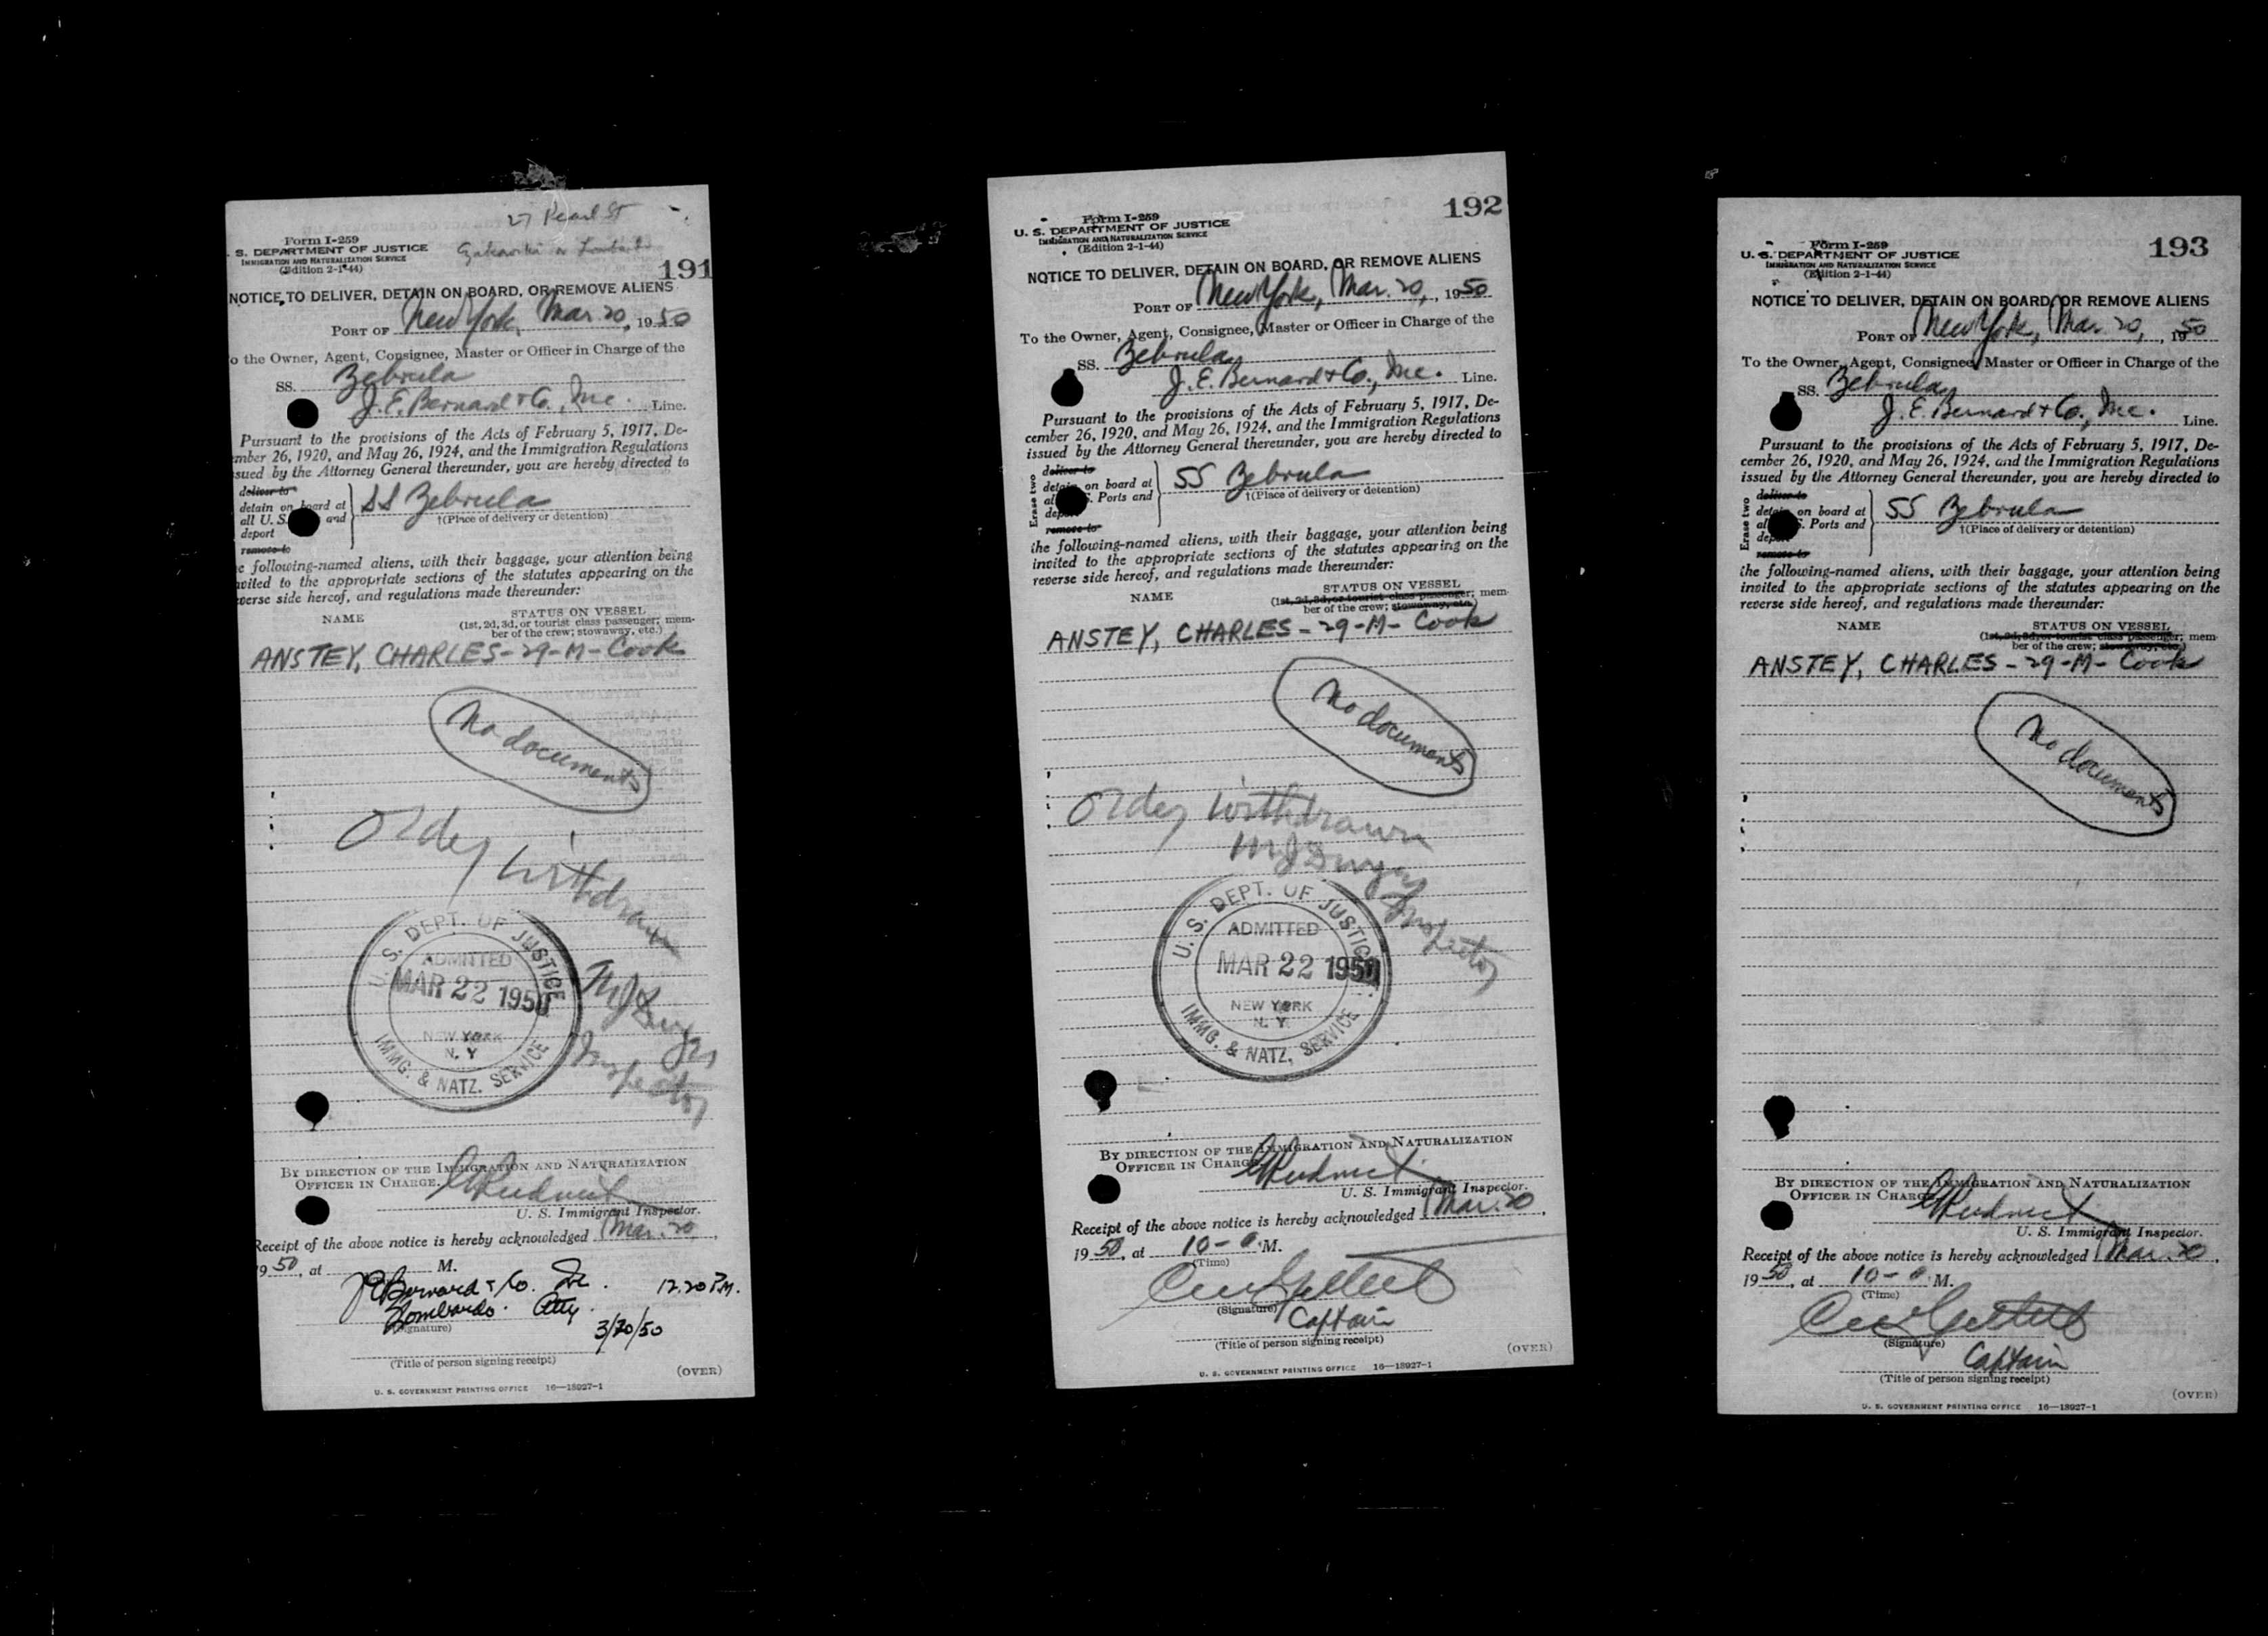 27 Pearl St
Form I-259
S. DEPARTMENT OF JUSTICE
IMMIGRATION AND NATURALIZATION SERVICE
(Edition 2-1-44)
191
NOTICE TO DELIVER, DETAIN ON BOARD, OR REMOVE ALIENS
PORT OF New York, Mar 20, 1950
o the Owner, Agent, Consignee, Master or Officer in Charge of the
SS. Zebrula
J. E. Bernard & Co., Inc. Line.
Pursuant to the provisions of the Acts of February 5, 1917, De-
mber 26, 1920, and May 26, 1924, and the Immigration Regulations
sued by the Attorney General thereunder, you are hereby directed to
deliver to
detain on board at
all U. S. and
deport
remove to
SS Zebrula
†(Place of delivery or detention)
e following-named aliens, with their baggage, your attention being
nvited to the appropriate sections of the statutes appearing on the
verse side hereof, and regulations made thereunder:
NAME STATUS ON VESSEL
(1st, 2d, 3d, or tourist class passenger; mem-
ber of the crew; stowaway, etc.)
ANSTEY, CHARLES - 29 - M - Cook
No documents
Order withdrawn
U. S. DEPT. OF JUSTICE
ADMITTED
MAR 22 1950
NEW YORK
N. Y.
IMMG. & NATZ. SERVICE
Inspector
BY DIRECTION OF THE IMMIGRATION AND NATURALIZATION
OFFICER IN CHARGE.
U. S. Immigrant Inspector.
Receipt of the above notice is hereby acknowledged Mar. 20,
1950, at M.
J E Bernard & Co. Inc. 12.20 P.M.
Lombardo. Atty.
(Signature)
3/20/50
(Title of person signing receipt)
(OVER)
U. S. GOVERNMENT PRINTING OFFICE 16—18927-1
192
Form I-259
U. S. DEPARTMENT OF JUSTICE
IMMIGRATION AND NATURALIZATION SERVICE
(Edition 2-1-44)
NOTICE TO DELIVER, DETAIN ON BOARD, OR REMOVE ALIENS
PORT OF New York, Mar. 20, , 1950
To the Owner, Agent, Consignee, Master or Officer in Charge of the
SS. Zebrula
J. E. Bernard & Co., Inc. Line.
Pursuant to the provisions of the Acts of February 5, 1917, De-
cember 26, 1920, and May 26, 1924, and the Immigration Regulations
issued by the Attorney General thereunder, you are hereby directed to
Erase two
deliver to
detain on board at
al S. Ports and
deport
remove to
SS Zebrula
†(Place of delivery or detention)
the following-named aliens, with their baggage, your attention being
invited to the appropriate sections of the statutes appearing on the
reverse side hereof, and regulations made thereunder:
NAME STATUS ON VESSEL
(1st, 2d, 3d, or tourist class passenger; mem-
ber of the crew; stowaway, etc.)
ANSTEY, CHARLES - 29 - M - Cook
No documents
Order withdrawn
Inspector
U. S. DEPT. OF JUSTICE
ADMITTED
MAR 22 1950
NEW YORK
N. Y.
IMMG. & NATZ. SERVICE
BY DIRECTION OF THE IMMIGRATION AND NATURALIZATION
OFFICER IN CHARGE.
U. S. Immigrant Inspector.
Receipt of the above notice is hereby acknowledged Mar. 20,
1950, at 10- M.
(Time)
(Signature)
Captain
(Title of person signing receipt)
(OVER)
U. S. GOVERNMENT PRINTING OFFICE 16—18927-1
193
Form I-259
U. S. DEPARTMENT OF JUSTICE
IMMIGRATION AND NATURALIZATION SERVICE
(Edition 2-1-44)
NOTICE TO DELIVER, DETAIN ON BOARD, OR REMOVE ALIENS
PORT OF New York, Mar. 20, , 1950
To the Owner, Agent, Consignee, Master or Officer in Charge of the
SS. Zebrula
J. E. Bernard & Co., Inc. Line.
Pursuant to the provisions of the Acts of February 5, 1917, De-
cember 26, 1920, and May 26, 1924, and the Immigration Regulations
issued by the Attorney General thereunder, you are hereby directed to
Erase two
deliver to
detain on board at
al S. Ports and
deport
remove to
SS Zebrula
†(Place of delivery or detention)
the following-named aliens, with their baggage, your attention being
invited to the appropriate sections of the statutes appearing on the
reverse side hereof, and regulations made thereunder:
NAME STATUS ON VESSEL
(1st, 2d, 3d, or tourist class passenger; mem-
ber of the crew; stowaway, etc.)
ANSTEY, CHARLES - 29 - M - Cook
No documents
BY DIRECTION OF THE IMMIGRATION AND NATURALIZATION
OFFICER IN CHARGE.
U. S. Immigrant Inspector.
Receipt of the above notice is hereby acknowledged Mar. 20,
1950, at 10- M.
(Time)
(Signature)
Captain
(Title of person signing receipt)
(OVER)
U. S. GOVERNMENT PRINTING OFFICE 16—18927-1